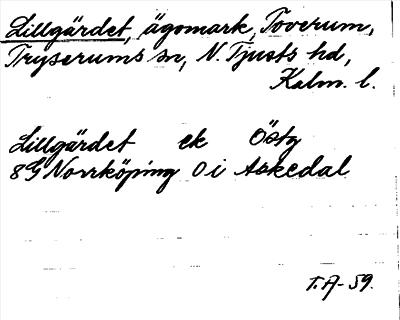 Lillgärdet, ägomark, Toverum,
Tryserums sn, N. Tjusts hd,
Kalm. l.
Lillgärdet ek Östg
8G Norrköping 0 i Askedal
T.A-59.